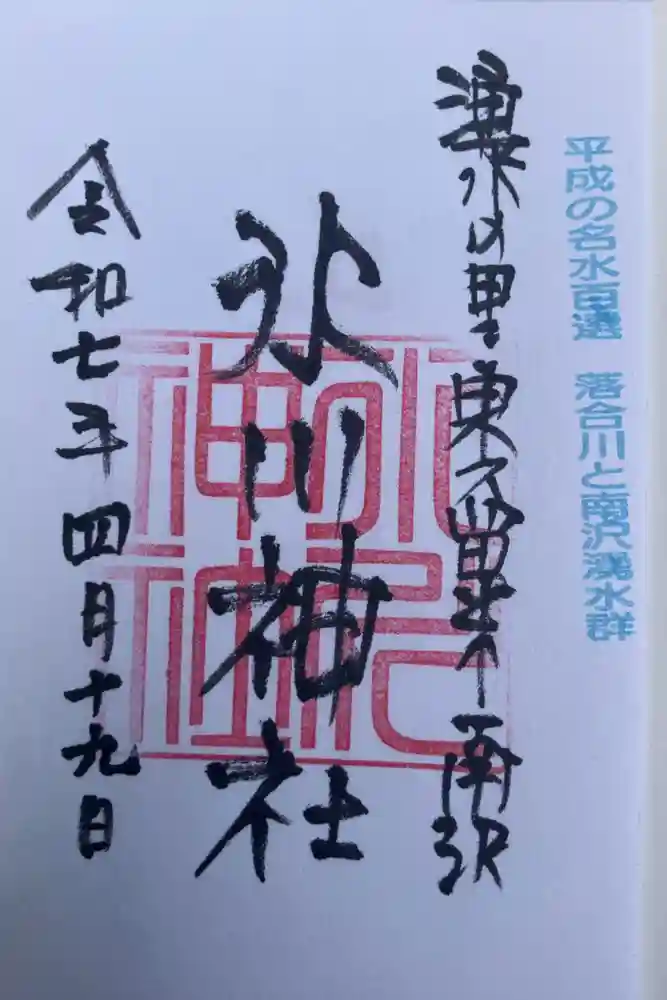 平成の名水百選 落合川と南沢湧水群
湧水の里東久留米市南沢
氷川神社
令和七年四月十九日